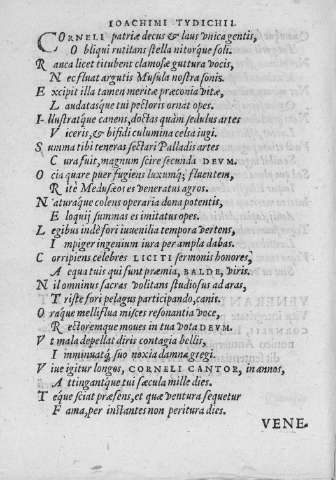 IOACHIMI TYDICHII.
CORNELI patriæ decus & laus vnica gentis,
O bliqui rutilans stella nitorq́ue soli.
R anca licet titubent clamosæ guttura vocis,
N ec fluat argutis Musula nostra sonis.
E xcipit illa tamen meritæ præconia vitæ,
L audatasque tui pectoris ornat opes.
I llustratq́ue canens, doctas quàm sedulus artes
V iceris, & bifidi culumina celsa iugi.
S umma tibi teneras sectari Palladis artes
C ura fuit, magnum scire secunda DEVM.
O cia quare puer fugiens luxumq́; fluentem,
R itè Meduseos es veneratus agros.
N aturaq́ue colens operaria dona potentis,
E loquij summas es imitatus opes.
L egibus indè fori iuuenilia tempora vertens,
I mpiger ingenium iura per ampla dabas.
C orripiens celebres LICITI sermonis honores,
A equa tuis qui sunt præmia, BALDE, viris.
N il omninus sacras volitans studiosus ad aras,
T riste fori pelagus participando, canis.
O raque melliflua misces resonantia voce,
R ectoremque moues in tua vota DEVM.
V t mala depellat diris contagia bellis,
I mminuatq́; suo noxia damna gregi.
V iue igitur longos, CORNELI CANTOR, in annos,
A ttingantque tui sæcula mille dies.
T eque sciat præsens, et quæ ventura sequetur
F ama, per instantes non peritura dies.
VENE-